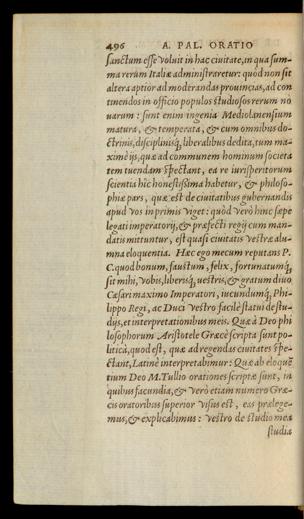 496 A. PAL. ORATIO
sanctum esse voluit in hac ciuitate, in qua sum-
ma rerum Italiæ administraretur: quòd non sit
altera aptior ad moderandas prouincias, ad con
tinendos in officio populos studiosos rerum no
uarum: sunt enim ingenia Mediolanensium
matura, & temperata, & cum omnibus do-
ctrinis, disciplinisq́; liberalibus dedita, tum ma-
ximè ijs, quæ ad communem hominum societa
tem tuendam spectant, ea re iurisperitorum
scientia hîc honestissima habetur, & philoso-
phiæ pars, quæ est de ciuitatibus gubernandis
apud vos in primis viget: quòd verò hinc sæpe
legati imperatorij, & præfecti regij cum man-
datis mittuntur, est quasi ciuitatis vestræ alu-
mna eloquentia. Hæc ego mecum reputans P.
C. quod bonum, faustum, felix, fortunatumq́;
sit mihi, vobis, liberisq́; vestris, & gratum diuo
Cæsari maximo Imperatori, iucundumq́; Phi-
lippo Regi, ac Duci vestro facilè statui de stu-
dijs, et interpretationibus meis. Quæ à Deo phi
losophorum Aristotele Græcè scripta sunt po-
litica, quod est, quæ ad regendas ciuitates spe-
ctant, Latinè interpretabimur: Quæ ab eloquē
tium Deo M. Tullio orationes scriptæ sunt, in
quibus facundia, & verò etiam numero Græ-
cis oratoribus superior visus est, eas prælege-
mus, & explicabimus: vestro de studio mea
studia